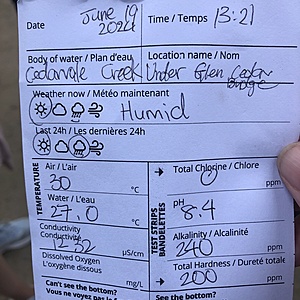 Date June 19 2024 Time / Temps 13:21
Body of water / Plan d'eau Location name / Nom
Cedarvale Creek Under Glen Cedar bridge
Weather now / Météo maintenant
Humid
Last 24h / Les dernières 24h
TEMPERATURE
Air / L'air
30 °C
Water / L'eau
27.0 °C
Conductivity
Conductivité
1252 µS/cm
Dissolved Oxygen
L'oxygène dissous
mg/L
Can't see the bottom?
Vous ne voyez pas le f
TEST STRIPS
BANDELETTES
Total Chlorine / Chlore
0 ppm
pH
8.4
Alkalinity / Alcalinité
240 ppm
Total Hardness / Dureté totale
200 ppm
See the bottom?